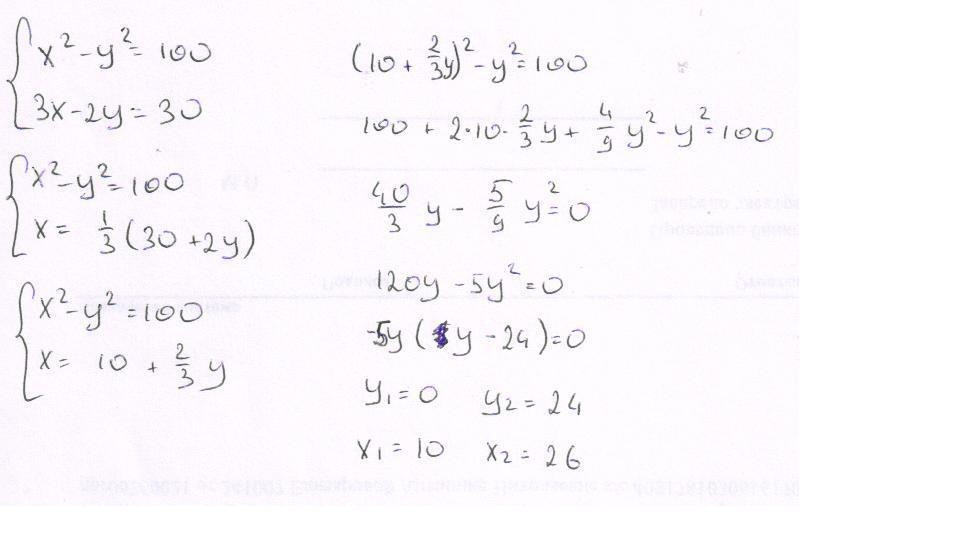 x² - y² = 100
3x - 2y = 30
x² - y² = 100
x = 1/3 (30 + 2y)
x² - y² = 100
x = 10 + 2/3 y
(10 + 2/3 y)² - y² = 100
100 + 2·10· 2/3 y + 4/9 y² - y² = 100
40/3 y - 5/9 y² = 0
120y - 5y² = 0
-5y ( y - 24 ) = 0
y₁ = 0 y₂ = 24
x₁ = 10 x₂ = 26